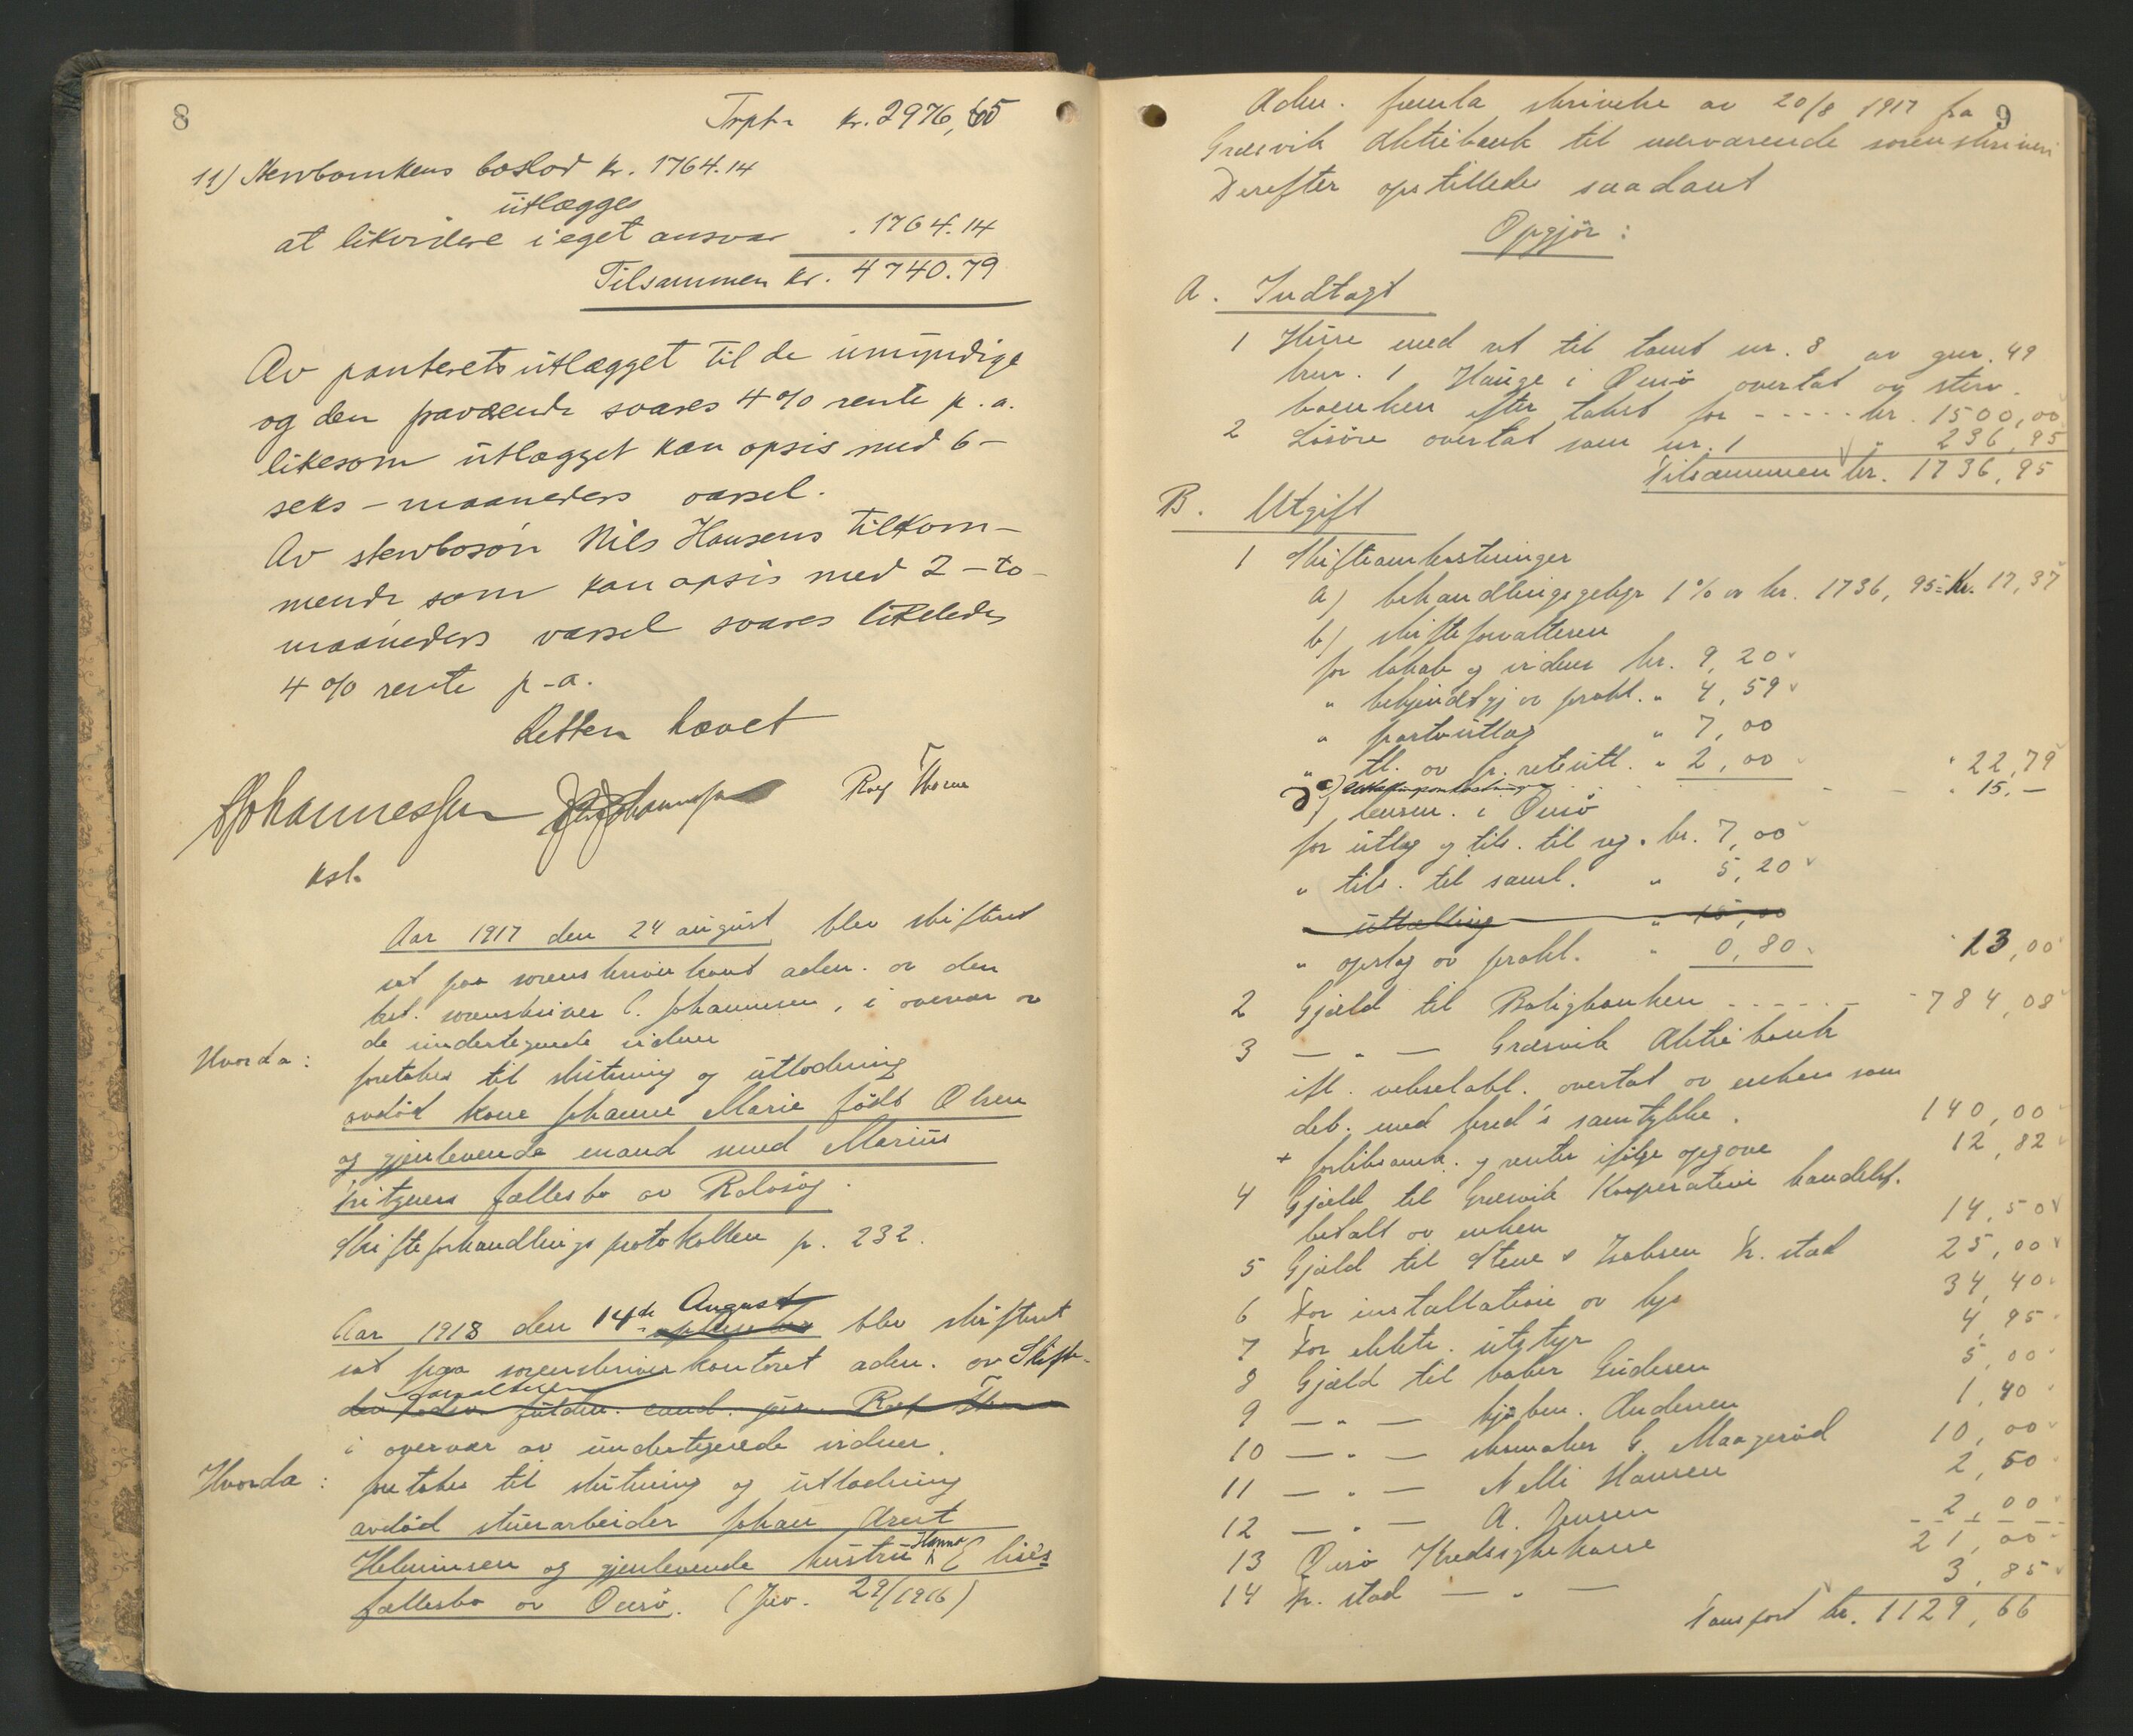 8
Trpt. kr. 2976,65
11) Stervboenkens boslod kr. 1764.14
utlægges
at likvidere i eget ansvar - 1764.14
Tilsammen kr. 4740.79
Av panteretsutlægget til de umyndige
og den fraværende svares 4% rente p. a.
likesom utlægget kan opsis med 6 -
seks - maaneders varsel.
Av stervbosøn Nils Hansens tilkom-
mende som kan opsis med 2 - to -
maaneders varsel svares likeledes
4% rente p. a.
Retten hævet
Johannessen Rolf Thorne
kst.
Aar 1917 den 24 august blev skifteret
sat paa sorenskriverkont adm. av den
kst. sorenskriver C. Johannessen, i overvær av
de undertegnede vidner
Hvorda:
foretokes til slutning og utlodning
avdød kone Johanne Marie født Olsen
og gjenlevende mand smed Marius
fællesbo av Rolvsøy.
Skifteforhandlingsprotokollen p. 232.
Aar 1918 den 14de August blev skifteret
sat paa sorenskriverkontoret adm. av Skifte-
forvalteren
den edsv. fuldm. cand. jur. Rolf Thorne
i overvær av undertegnede vidner.
Hvorda:
foretokes til slutning og utlodning
avdød stenarbeider Johan Arent
Helminsen og gjenlevende hustru Hanna Elises
fællesbo av Onsø. (Jnr. 29/1916)
9
Adm. fremla skrivelse av 20/8 1917 fra
Græsvik Aktiebank til nærværende sorenskriveri
Derefter opstilledes saadant
Opgjør:
A. Indtægt
1 Huse med ret til tomt nr. 8 av gnr. 49
brnr. 1 Hauge i Onsø overtat av sterv-
boenken efter takst for - - - - - kr. 1500,00
2 Løsøre overtat som nr. 1 " 236,95
Tilsammen kr. 1736,95
B. Utgift
1 Skifteomkostninger
a) behandlingsgebyr 1% av kr. 1736,95 = kr. 17,37
b) skifteforvalteren
for lokale og vidner kr. 9,20
" bekjendtgj av prokl. " 4,59
" portoutlæg " 7,00
" tl. av p. retsutl. " 2,00 " 22,79
c) " 15,-
d) lensm. i Onsø
for utlæg og tils. til reg. kr. 7,00
" tils. til saml. " 5,20
" uttælling " 15,00
" opslag av prokl. " 0,80 " 13,00
2 Gjæld til Boligbanken - - - - - - 784,08
3 — " — Græsvik Aktiebank
ifl. vekselobl. overtat av enken som
deb. med kred's samtykke. 140,00
+ forliksomk. og renter ifølge opgave 12,82
4 Gjæld til Græsvik Kooperative handelsf.
betalt av enken 14,50
5 Gjæld til Stene & Isaksen Fr. stad 25,00
6 For installation av lys 34,40
7 For elektr. utstyr 4,95
8 Gjæld til baker Gudesen 5,00
9 — " — kjøbm. Andersen 1,40
10 — " — skomaker G. Maagerød 10,00
11 — " — Nelli Hansen 2,50
12 — " — A. Jensen 2,00
13 Onsø Kredssykekasse 21,00
14 Fr. stad — " — 3,85
Transport kr. 1129,66